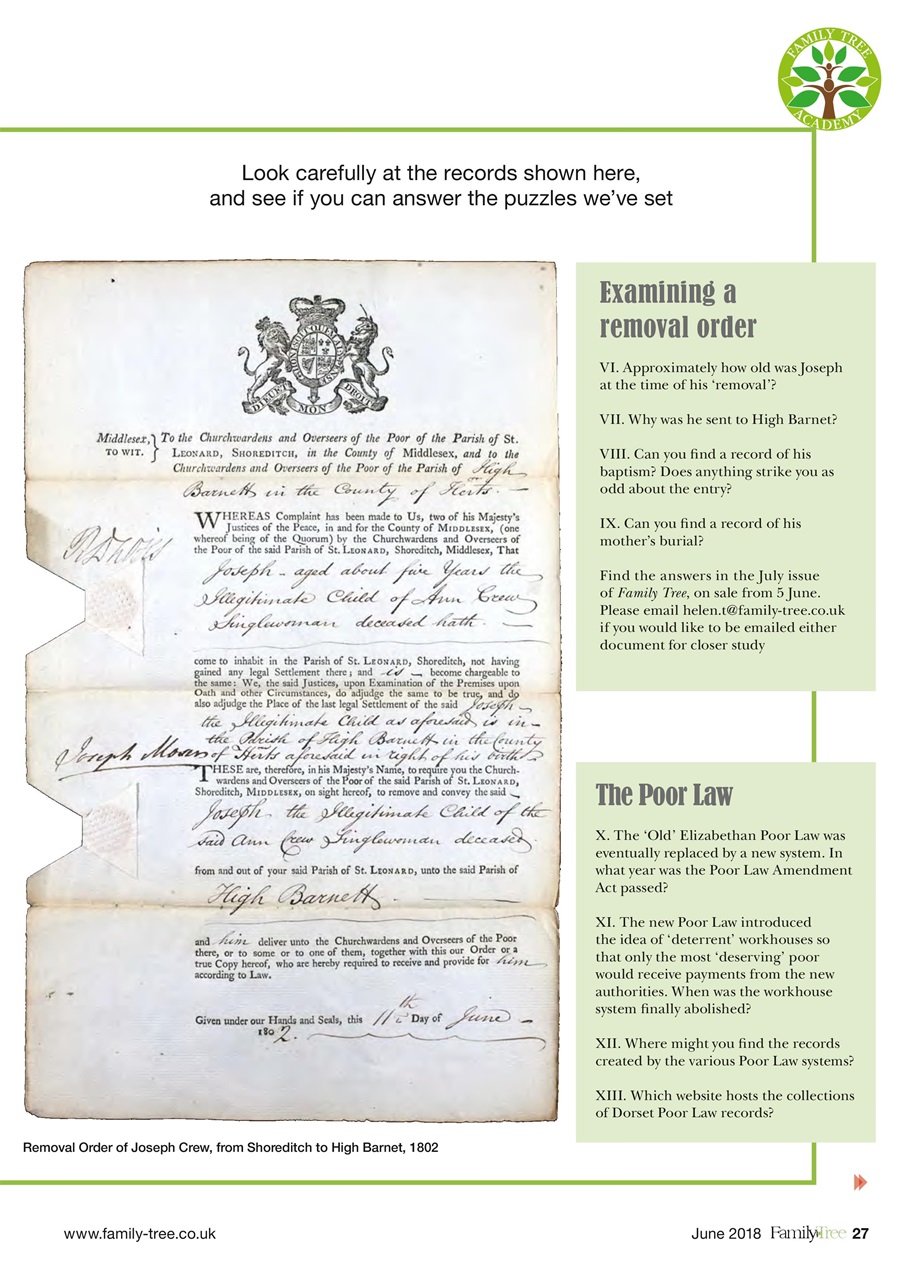 FAMILY TREE
ACADEMY
Look carefully at the records shown here,
and see if you can answer the puzzles we’ve set
DIEU ET
MON
DROIT
Middlesex,
TO WIT.
To the Churchwardens and Overseers of the Poor of the Parish of St.
LEONARD, SHOREDITCH, in the County of Middlesex, and to the
Churchwardens and Overseers of the Poor of the Parish of High
Barnett in the County of Herts. —
WHEREAS Complaint has been made to Us, two of his Majesty's
Justices of the Peace, in and for the County of MIDDLESEX, (one
whereof being of the Quorum) by the Churchwardens and Overseers of
the Poor of the said Parish of St. LEONARD, Shoreditch, Middlesex, That
Joseph - aged about five Years the
Illegitimate Child of Ann Crew
Singlewoman deceased hath. —
come to inhabit in the Parish of St. LEONARD, Shoreditch, not having
gained any legal Settlement there; and is — become chargeable to
the same: We, the said Justices, upon Examination of the Premises upon
Oath and other Circumstances, do adjudge the same to be true, and do
also adjudge the Place of the last legal Settlement of the said Joseph
the Illegitimate Child as aforesaid is in
the Parish of High Barnett in the County
Joseph Moser
of Herts aforesaid in right of his birth
THESE are, therefore, in his Majesty's Name, to require you the Church-
wardens and Overseers of the Poor of the said Parish of St. LEONARD,
Shoreditch, MIDDLESEX, on sight hereof, to remove and convey the said
Joseph the Illegitimate Child of the
said Ann Crew Singlewoman deceased
from and out of your said Parish of St. LEONARD, unto the said Parish of
High Barnett. —
and him deliver unto the Churchwardens and Overseers of the Poor
there, or to some or to one of them, together with this our Order or a
true Copy hereof, who are hereby required to receive and provide for him
according to Law.
Given under our Hands and Seals, this 11th Day of June —
1802.
Removal Order of Joseph Crew, from Shoreditch to High Barnet, 1802
Examining a
removal order
VI. Approximately how old was Joseph
at the time of his ‘removal’?
VII. Why was he sent to High Barnet?
VIII. Can you find a record of his
baptism? Does anything strike you as
odd about the entry?
IX. Can you find a record of his
mother’s burial?
Find the answers in the July issue
of Family Tree, on sale from 5 June.
Please email helen.t@family-tree.co.uk
if you would like to be emailed either
document for closer study
The Poor Law
X. The ‘Old’ Elizabethan Poor Law was
eventually replaced by a new system. In
what year was the Poor Law Amendment
Act passed?
XI. The new Poor Law introduced
the idea of ‘deterrent’ workhouses so
that only the most ‘deserving’ poor
would receive payments from the new
authorities. When was the workhouse
system finally abolished?
XII. Where might you find the records
created by the various Poor Law systems?
XIII. Which website hosts the collections
of Dorset Poor Law records?
www.family-tree.co.uk
June 2018 FamilyTree 27